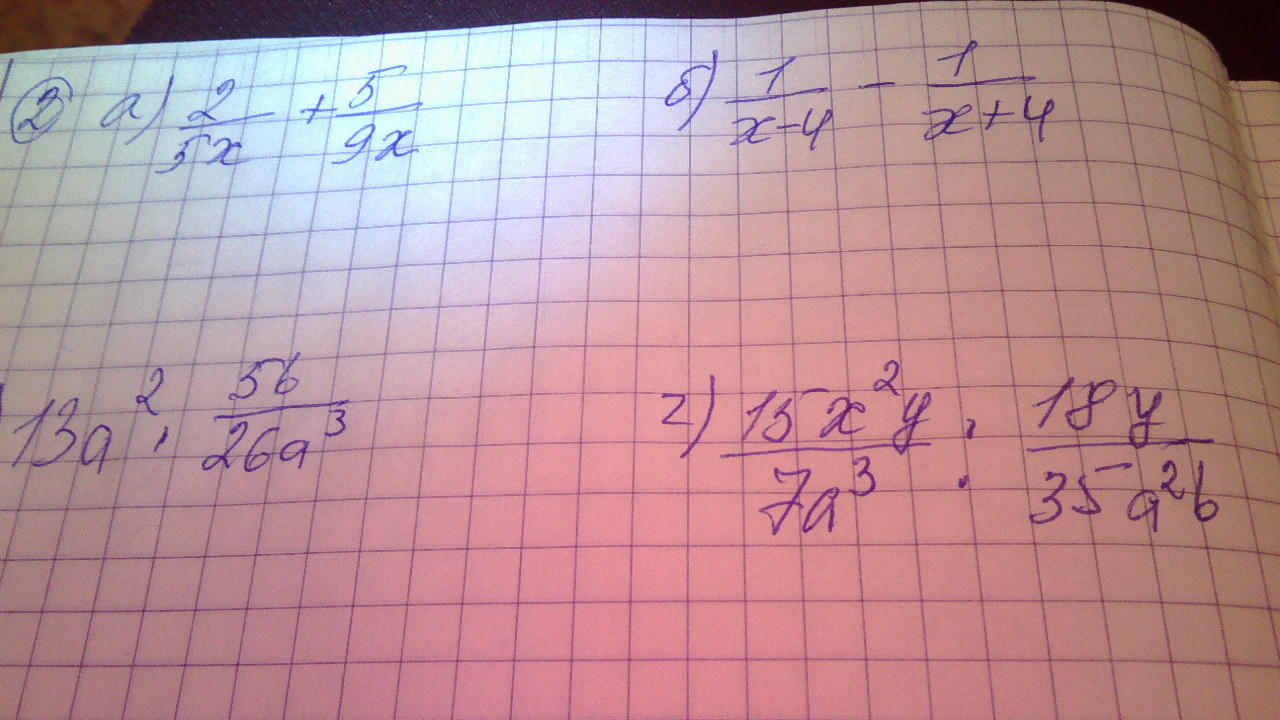 ② а) 2/(5x) + 5/(9x) б) 1/(x-4) - 1/(x+4)
) 13a² · 5b/(26a³) г) 15x²y/(7a³) : 18y/(35a²b)